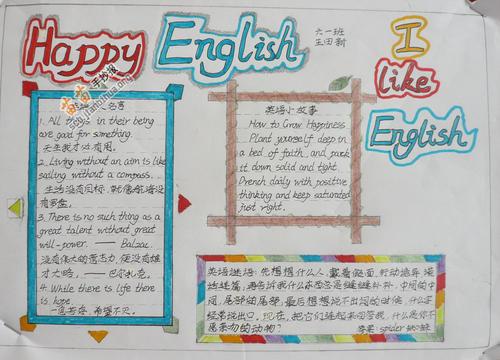 Happy English
六一班
I
like
English
英语小故事
How to Grow Happiness
Plant yourself deep in
a bed of faith, and pack
it down solid and tight.
Drench daily with positive
thinking and keep saturated
just right.
1. All things in their being
are good for something.
天生我才必有用。
2. Living without an aim is like
sailing without a compass.
生活没有目标,就像航海没
有罗盘。
3. There is no such thing as a
great talent without great
will-power. —— Balzac.
没有伟大的意志力,便没有雄
才大略。——巴尔扎克。
4. While there is life there
is hope.
一息若存,希望不灭。
英语谜语:先想想什么人,戴着假面,行动诡异,
谎话连篇,再告诉我什么东西总是缝缝补补,中间的中
间,尾部的尾部,最后想想说不出词的时候,什么字
经常说出口,现在,把它们连起来回答我,什么是你不
愿亲吻的动物?
答案:spider 蜘蛛